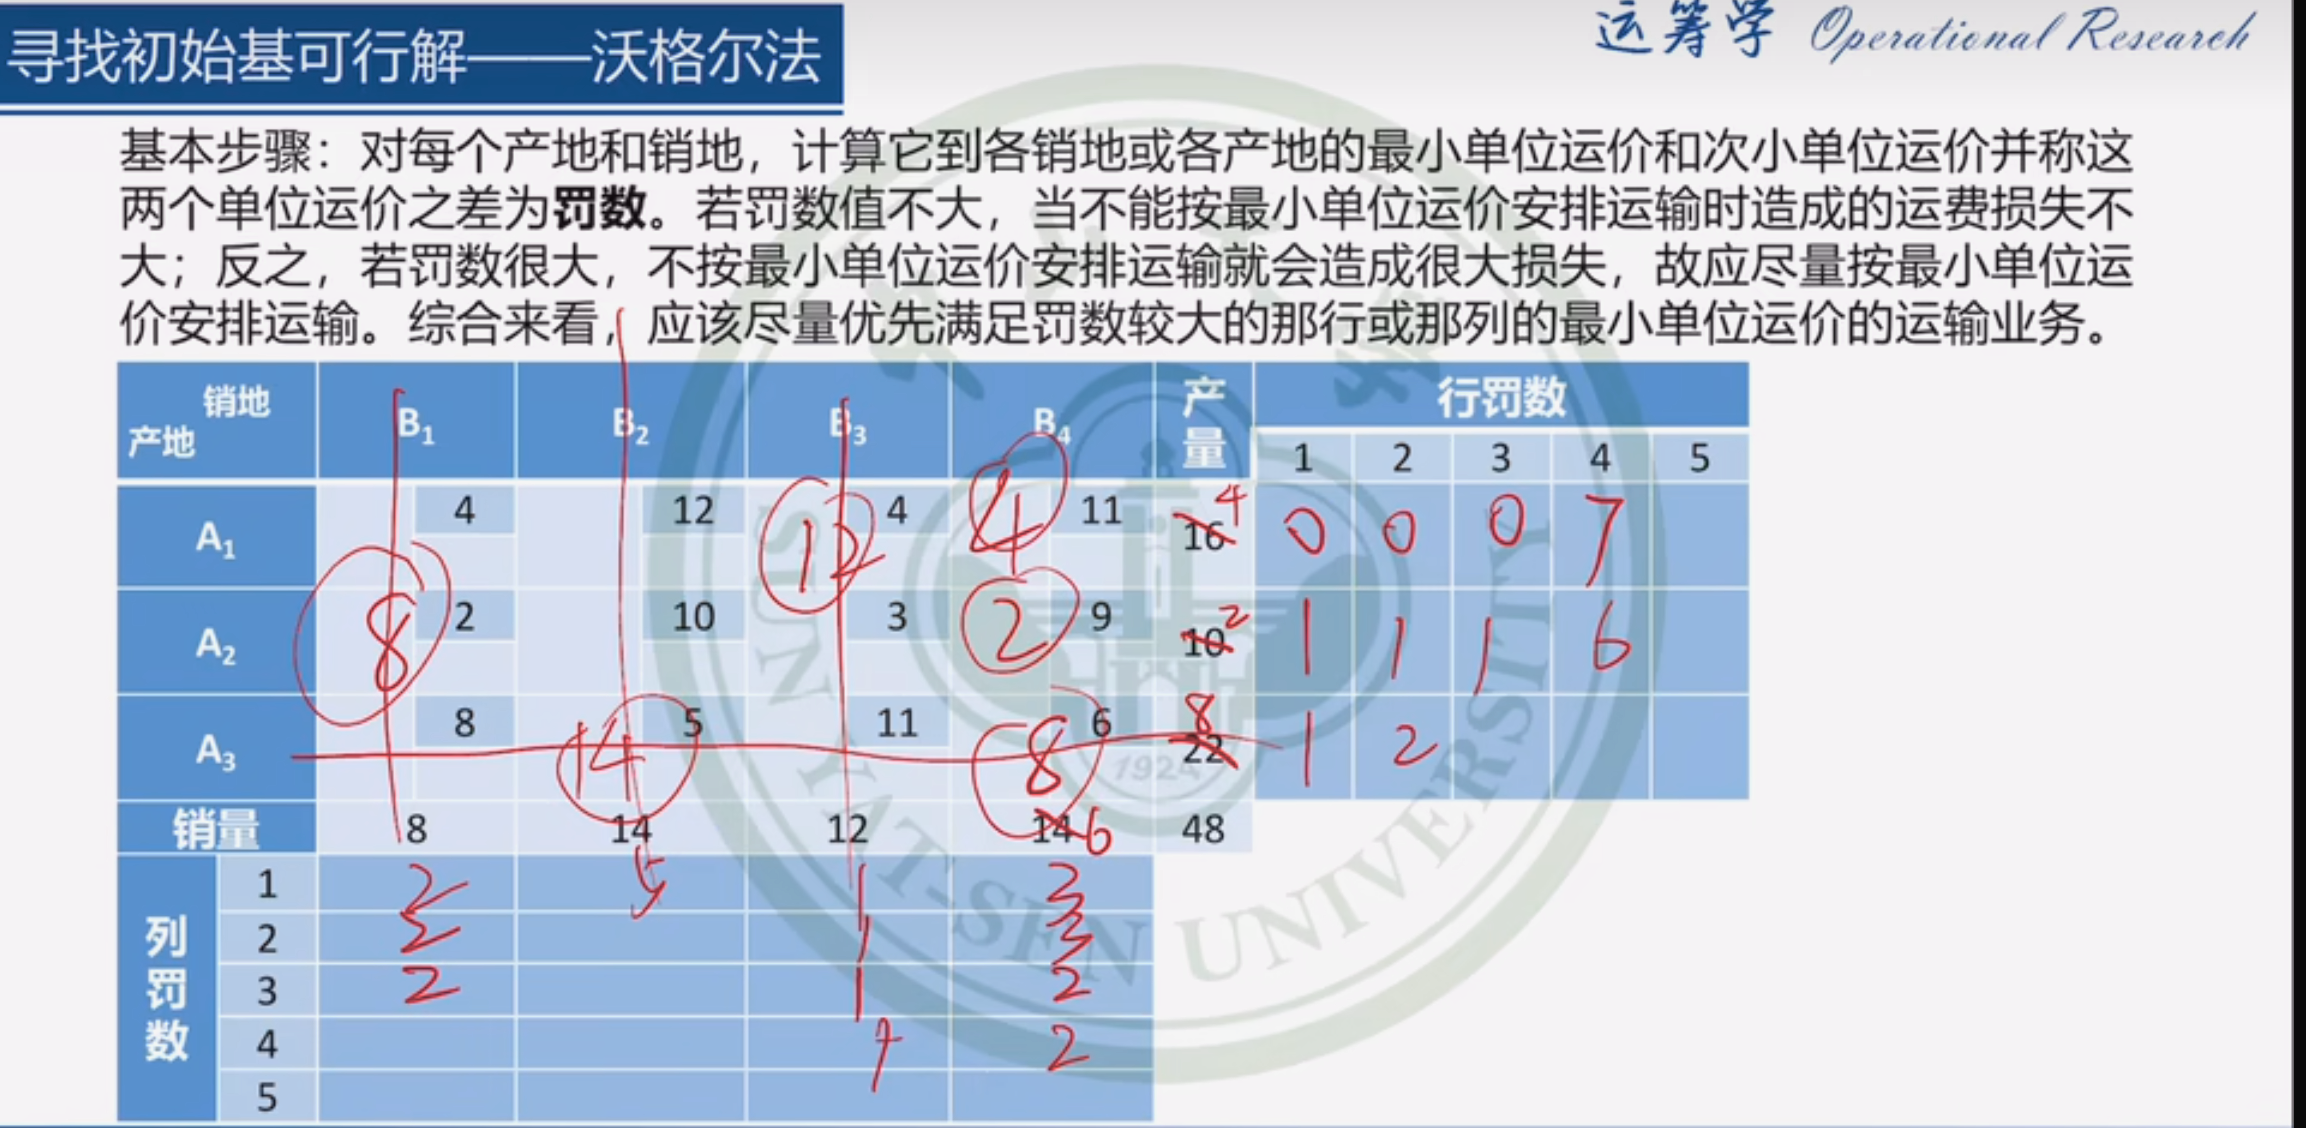 寻找初始基可行解——沃格尔法
运筹学 Operational Research
基本步骤：对每个产地和销地，计算它到各销地或各产地的最小单位运价和次小单位运价并称这
两个单位运价之差为罚数。若罚数值不大，当不能按最小单位运价安排运输时造成的运费损失不
大；反之，若罚数很大，不按最小单位运价安排运输就会造成很大损失，故应尽量按最小单位运
价安排运输。综合来看，应该尽量优先满足罚数较大的那行或那列的最小单位运价的运输业务。
销地 产地 B1 B2 B3 B4 产量 行罚数
1 2 3 4 5
A1 4 12 12 4 4 11 16 4 0 0 0 7
A2 8 2 10 3 2 9 10 2 1 1 1 6
A3 8 14 5 11 8 6 22 8 1 2
销量 8 14 12 14 6 48
列罚数
1 2 5 1 3
2 2 1 3
3 2 1 2
4 1 2
5
SUN YAT-SEN UNIVERSITY
1924